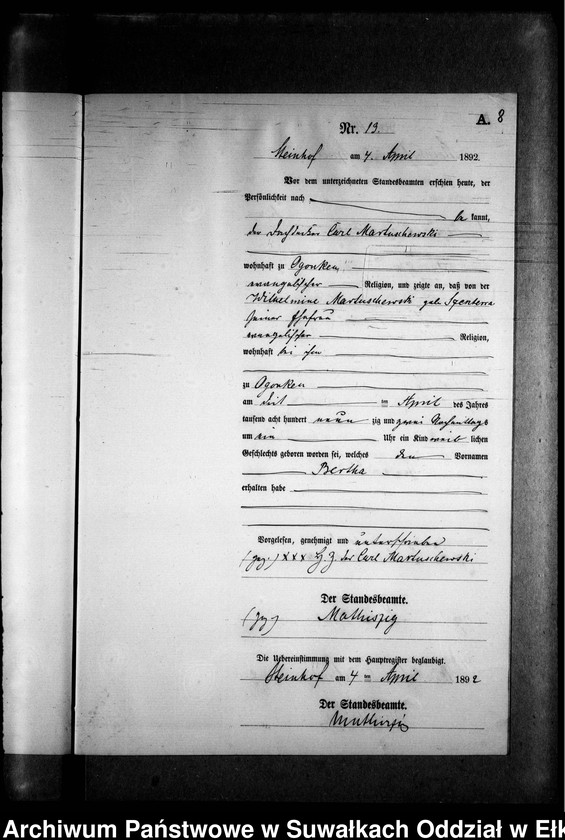 A. 8
Nr. 13.
Steinhof am 4. April 1892.
Vor dem unterzeichneten Standesbeamten erschien heute, der
Persönlichkeit nach
be kannt,
der Carl Martuschewski
wohnhaft zu Ogonken,
evangelischer Religion, und zeigte an, daß von der
Wilhelmine Martuschewski geb.
seiner Ehefrau
evangelischer Religion,
wohnhaft bei ihm
zu Ogonken
am ten April des Jahres
tausend acht hundert neun zig und zwei Nachmittags
um ein Uhr ein Kind weib lichen
Geschlechts geboren worden sei, welches den Vornamen
Bertha
erhalten habe
Vorgelesen, genehmigt und unterschrieben
(gez.) XXX Hz. der Carl Martuschewski
Der Standesbeamte.
(gez)
Die Uebereinstimmung mit dem Hauptregister beglaubigt.
Steinhof am 4 ten April 1892
Der Standesbeamte.
Archiwum Państwowe w Suwałkach Oddział w Ełk